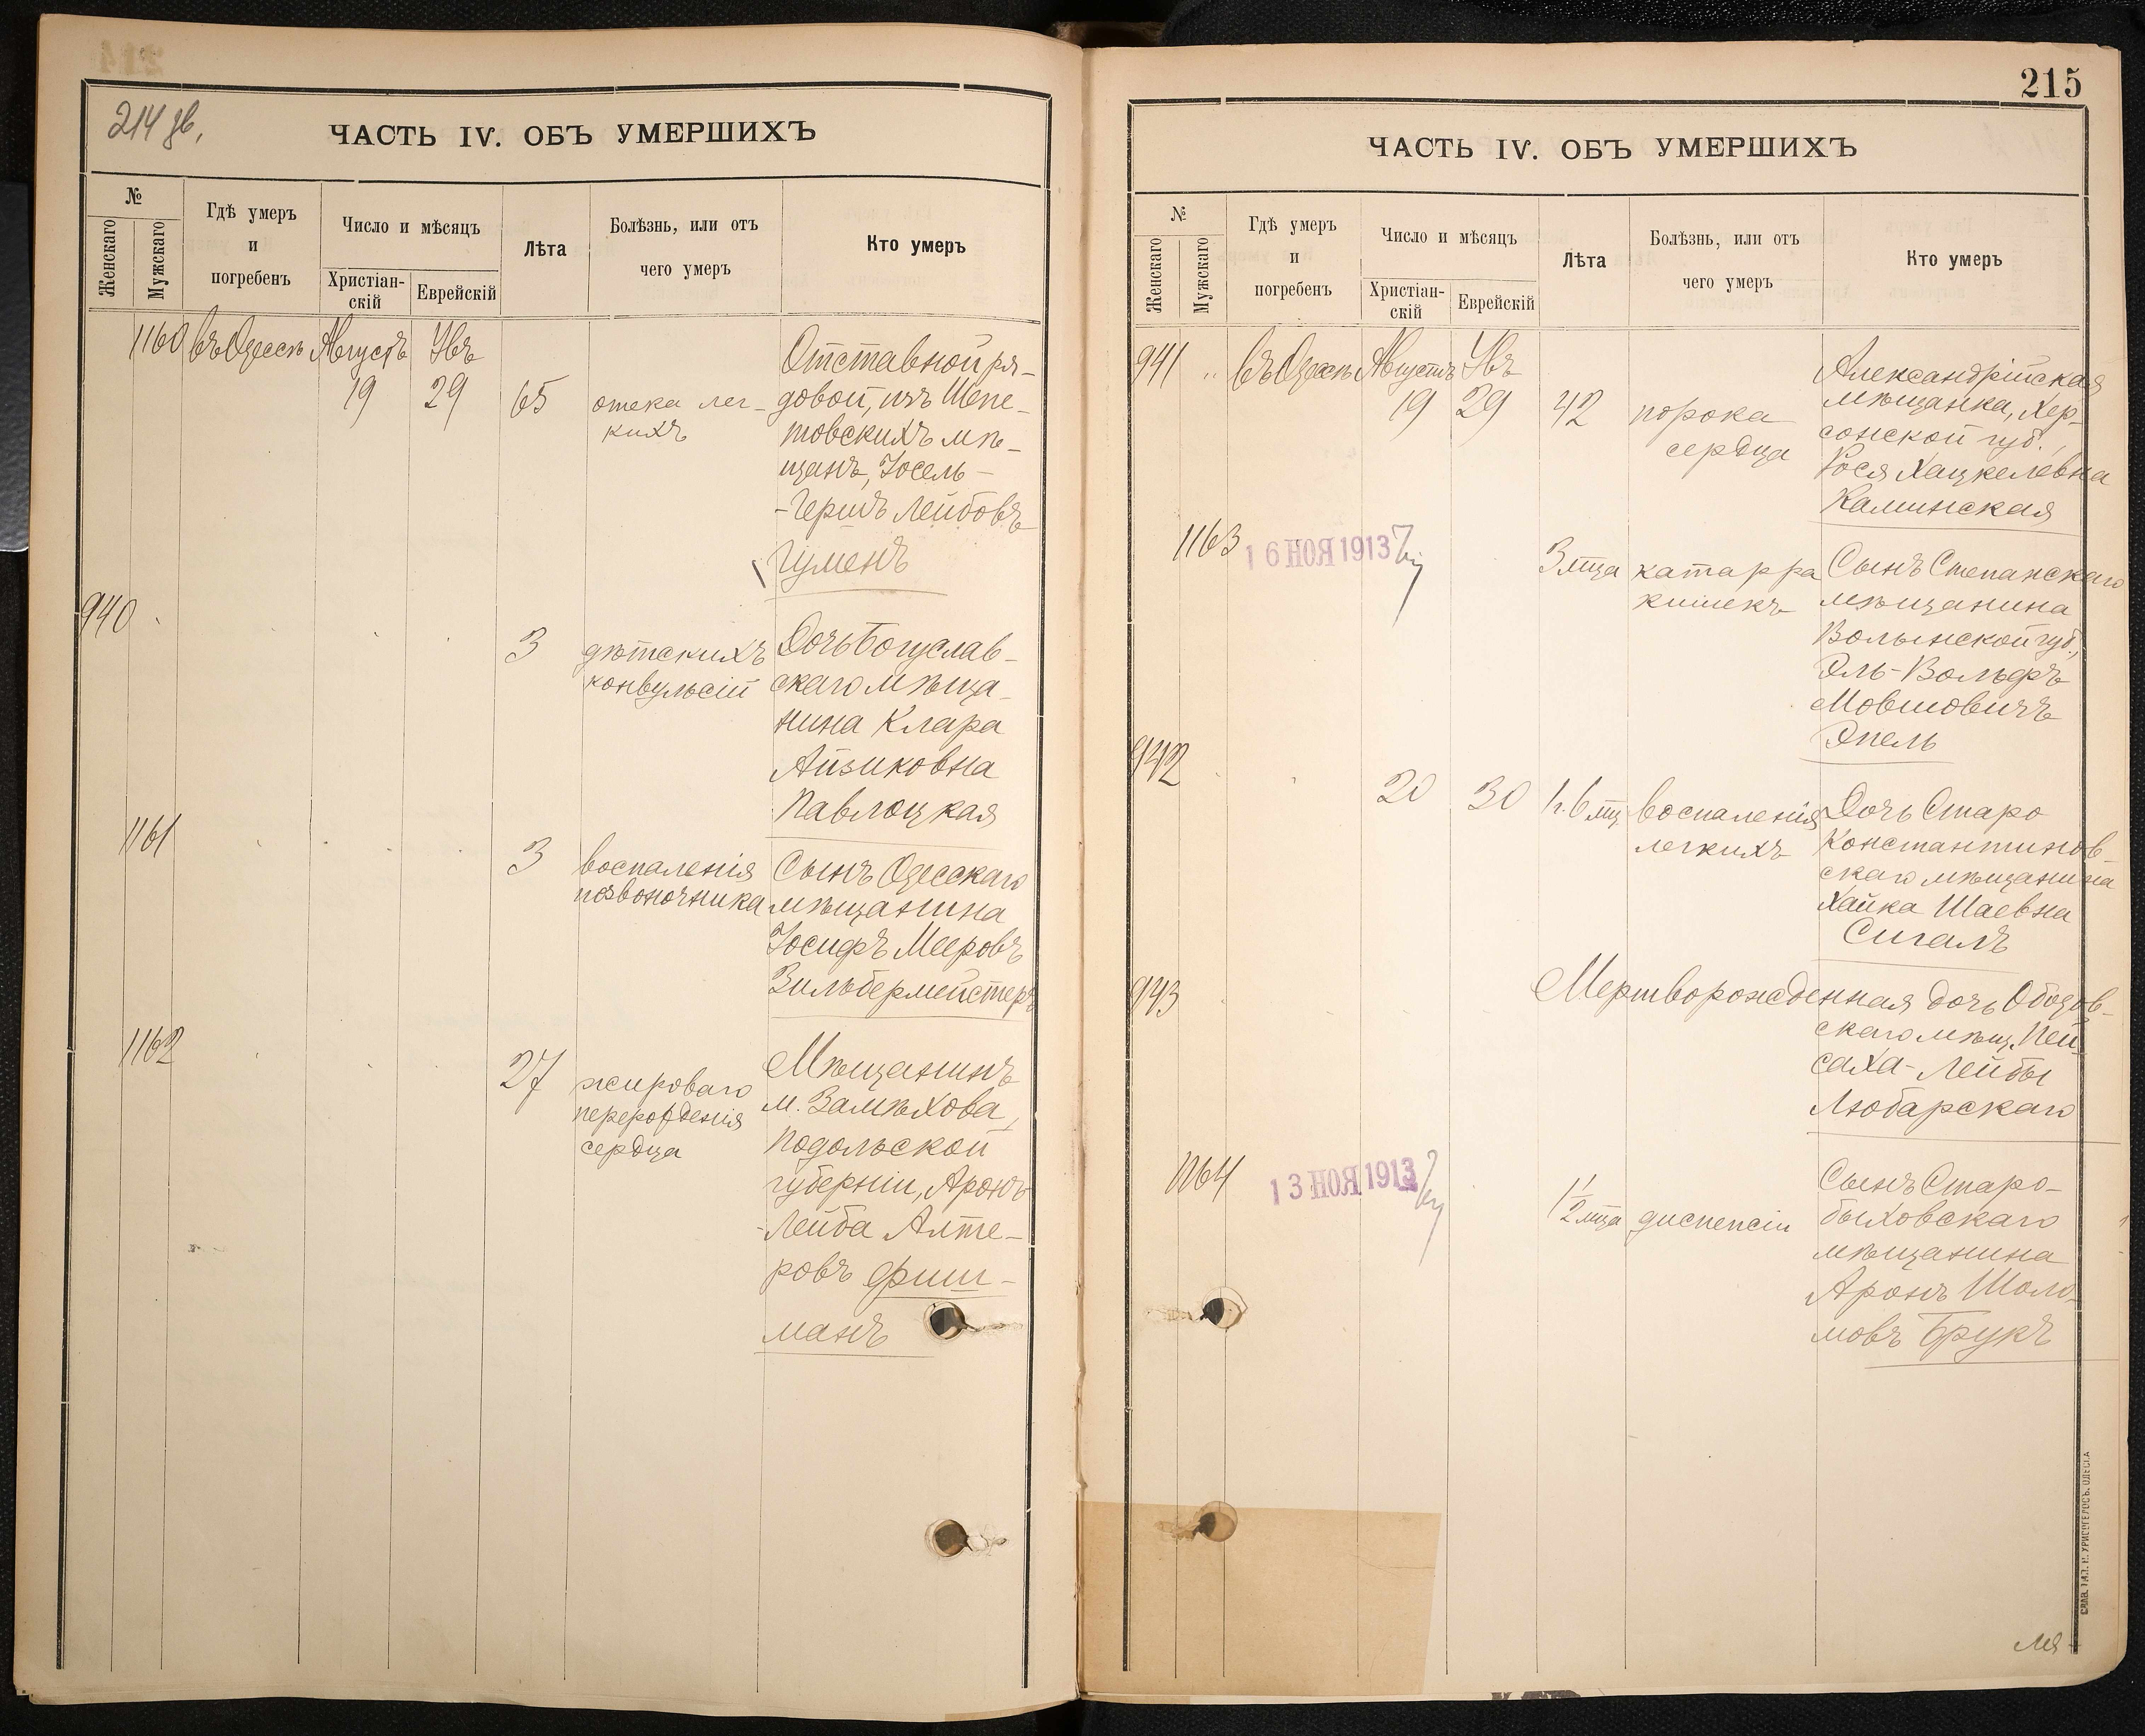 ЧАСТЬ IV. ОБЪ УМЕРШИХЪ
№
Женскаго
Мужскаго
Гдѣ умеръ
и
погребенъ
Число и мѣсяцъ
Христіан-
скій
Еврейскій
Лѣта
Болѣзнь, или отъ
чего умеръ
Кто умеръ
1160 въ Одессѣ Августъ Авъ
19 29 65
отека лег-
кихъ
Отставной ря-
довой, изъ Шепе-
товскихъ мѣ-
щанъ, Іосель-
-Гершъ Лейбовъ
Гуменъ
940
3
дѣтскихъ
конвульсій
Дочь Богуслав-
скаго мѣща-
нина Клара
Айзиковна
Павлоцкая
1161
3
воспаленія
позвоночника
Сынъ Одесскаго
мѣщанина
Іосифъ Мееровъ
Зильбермейстеръ
1162
27
жироваго
перерожденія
сердца
Мѣщанинъ
м. Замѣхова,
Подольской
губерніи, Аронъ-
-Лейба Алте-
ровъ Фиш-
манъ
215
ЧАСТЬ IV. ОБЪ УМЕРШИХЪ
№
Женскаго
Мужскаго
Гдѣ умеръ
и
погребенъ
Число и мѣсяцъ
Христіан-
скій
Еврейскій
Лѣта
Болѣзнь, или отъ
чего умеръ
Кто умеръ
941 въ Одессѣ Августъ Авъ
19 29 42
порока
сердца
Александрійская
мѣщанка, Хер-
сонской губ.,
Рося Хацкелевна
Каминская
1163
16 НОЯ 1913
3 мца
катарра
кишекъ
Сынъ Степанскаго
мѣщанина
Волынской губ.,
Эль-Вольфъ
Мовшовичъ
Эпель
942
20 30 1 г. 6 мц
воспаленія
легкихъ
Дочь Старо
Константинов-
скаго мѣщанина
Хайка Шаевна
Сигалъ
943
Мертворожденная дочь
скаго мѣщ. Пей-
саха-Лейбы
Любарскаго
1164
13 НОЯ 1913
1 1/2 мца
диспепсіи
Сынъ Старо-
быховскаго
мѣщанина
Аронъ Шоло-
мовъ Брукъ